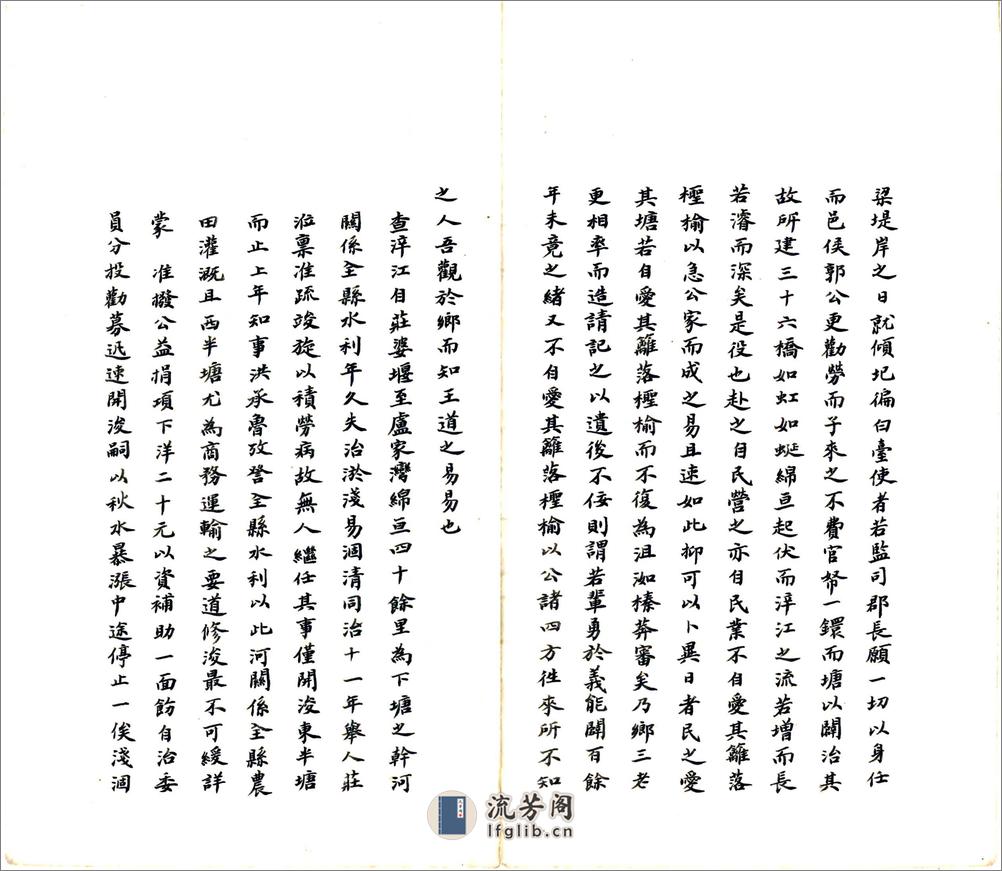 梁堤岸之日就傾圮徧白臺使者若監司郡長願一切以身任
而邑侯郭公更勸勞而子來之不費官帑一鐶而塘以闢治其
故所建三十六橋如虹如蜒綿亘起伏而渟江之流若增而長
若濬而深矣是役也赴之自民營之亦自民業不自愛其籬落
樫榆以急公家而成之易且速如此抑可以卜異日者民之愛
其塘若自愛其籬落樫榆而不復為沮洳榛莽審矣乃鄉三老
更相率而造請記之以遺後不佞則謂若輩勇於義能闢百餘
年未竟之緒又不自愛其籬落樫榆以公諸四方徃來所不知
之人吾觀於鄉而知王道之易易也
查渟江自莊婆堰至盧家灣綿亘四十餘里為下塘之幹河
關係全縣水利年久失治淤淺易涸清同治十一年舉人莊
泚稟准疏竣旋以積勞病故無人繼任其事僅開浚東半塘
而止上年知事洪承魯攷詧全縣水利以此河關係全縣農
田灌溉且西半塘尤為商務運輸之要道修浚最不可緩詳
蒙 准撥公益捐項下洋二十元以資補助一面飭自治委
員分投勸募迅速開浚嗣以秋水暴漲中途停止一俟淺涸
流芳阁
lfglib.cn